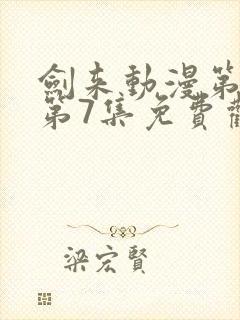 劍来動漫第
第7集免費觀
梁宏賢